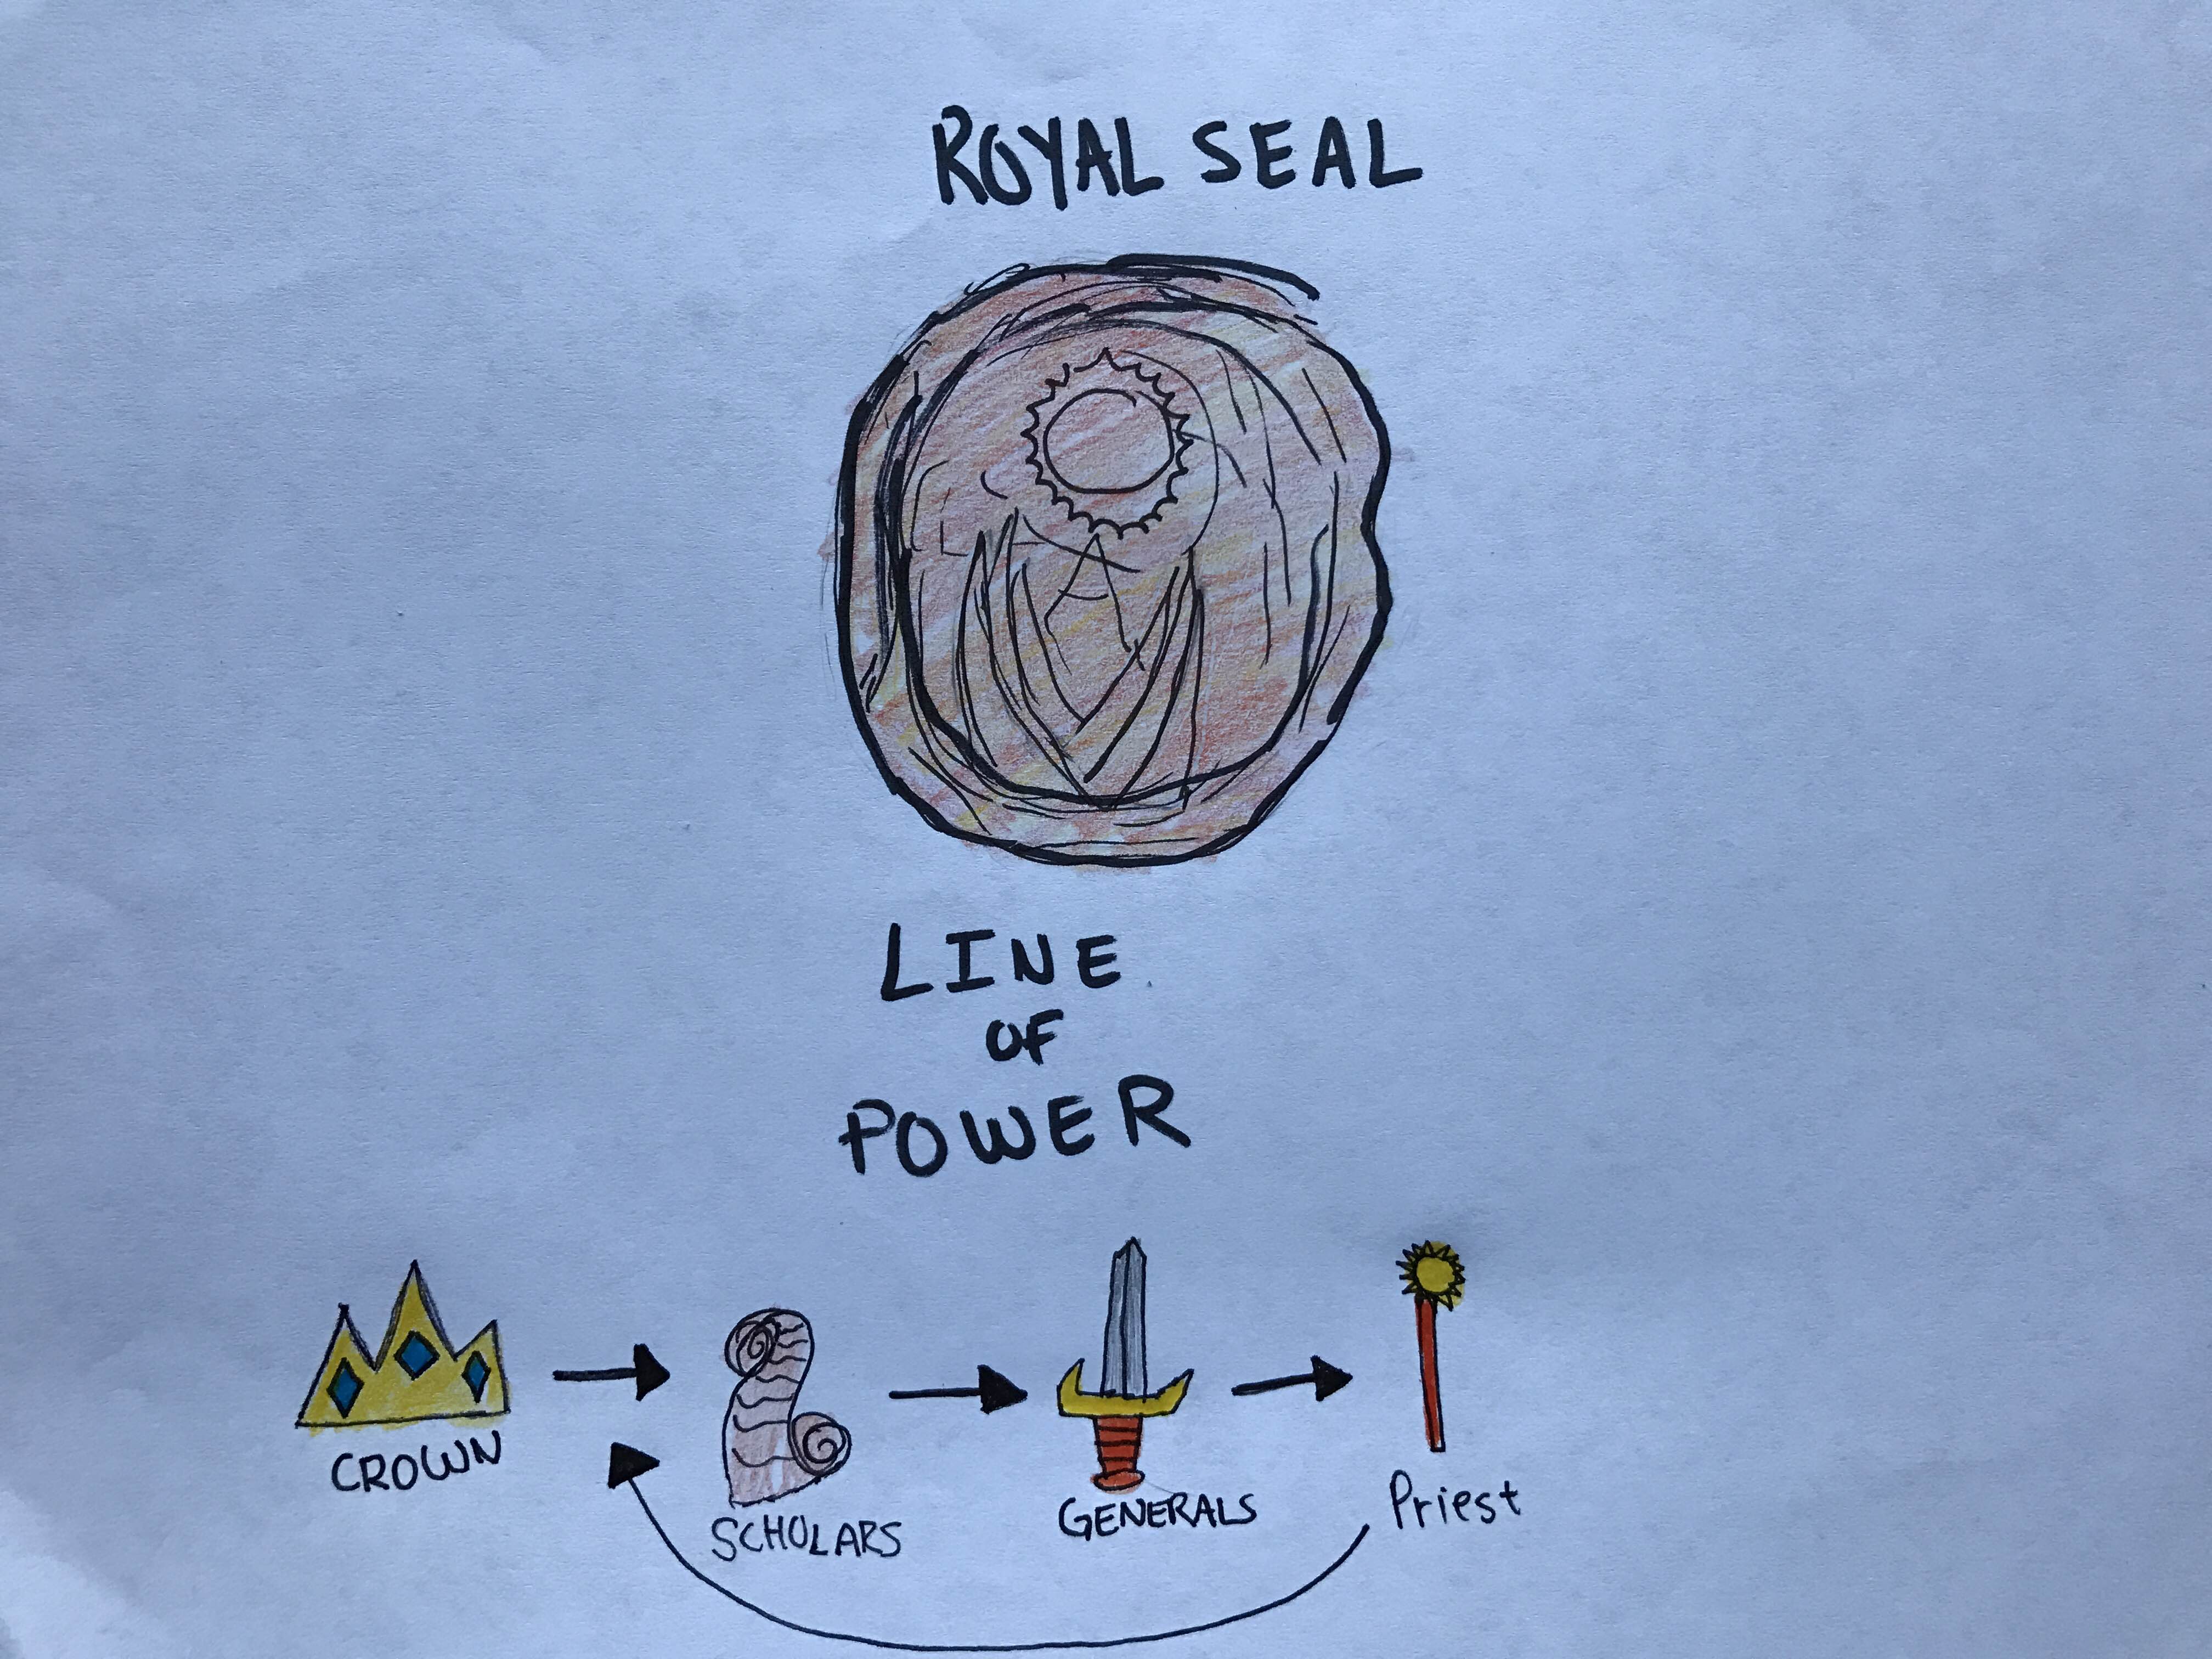 ROYAL SEAL
LINE
OF
POWER
CROWN
SCHOLARS
GENERALS
Priest